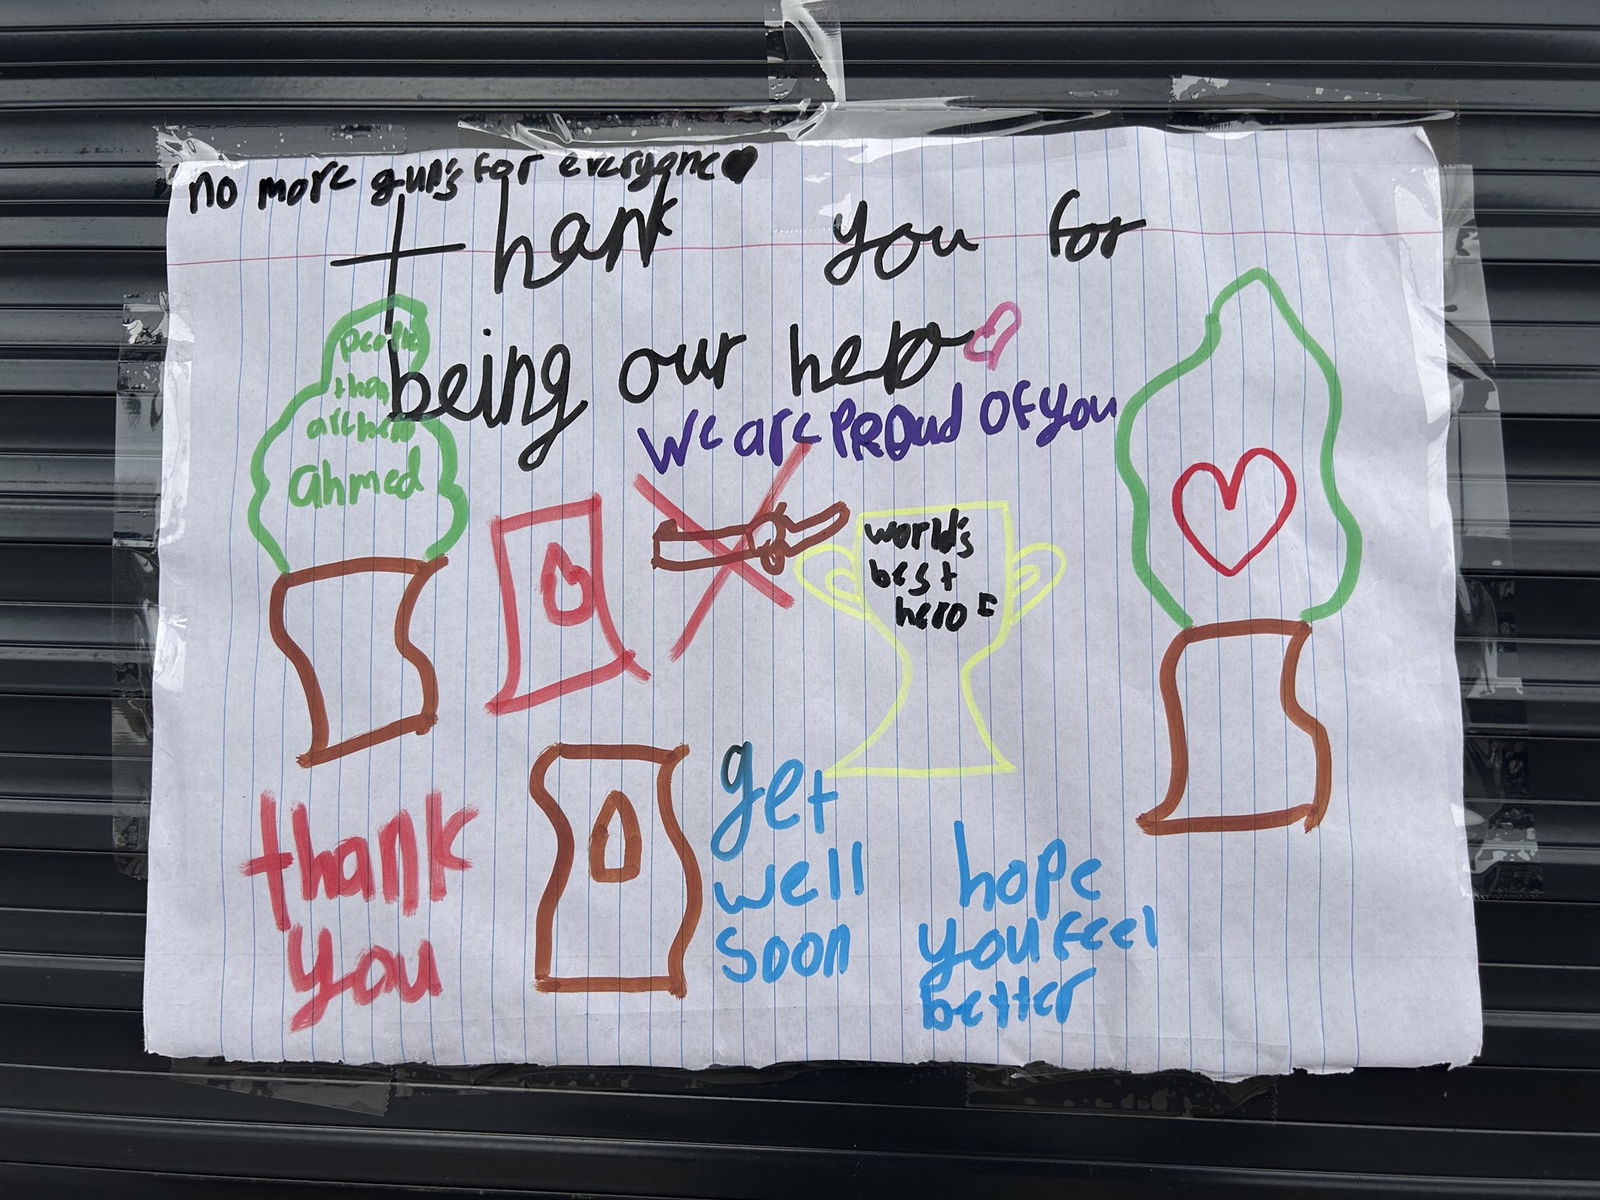 no more guns for everyone
thank you for
being our hero
we are PROud OF you
people
that
are hero
ahmed
world's
best
hero
thank
you
get
well
soon
hope
you feel
better